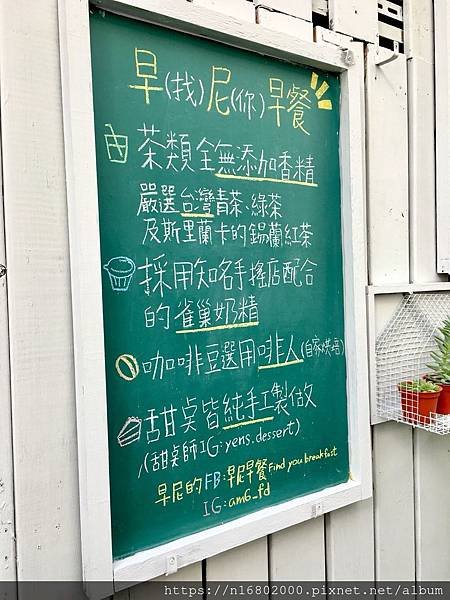 早(找)尼(你)早餐
茶類全無添加香精
嚴選台灣青茶、綠茶
及斯里蘭卡的錫蘭紅茶
採用知名手搖店配合
的雀巢奶精
咖啡豆選用啡人(自家烘培)
甜桌皆純手工製做
(甜桌師IG:yens.dessert)
早尼的FB:早尼早餐Find you breakfast
IG:am6_fd
https://n16802000.pixnet.net/album